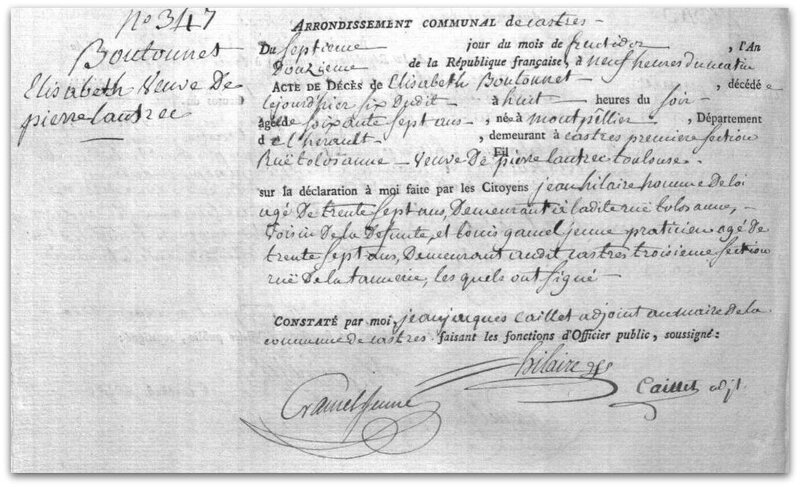 N° 347
Boutounet
Elisabeth veuve De
pierre lautrec
ARRONDISSEMENT COMMUNAL de castres
Du septieme jour du mois de fructidor, l'An
Douzieme de la République française, à neuf heures du matin
ACTE DE DÉCÈS de Elisabeth Boutounet, décédé e
le jourd'hier six dudit à huit heures du soir
agée de soixante sept ans, née à montpellier, Département
de l'herault, demeurant à castres premiere section
Ruë tolosanne veuve De pierre lautrec toulouse.
sur la déclaration à moi faite par les Citoyens jean hilaire homme de loi
agé De trente sept ans, Demeurant à ladite rue tolosanne,
voisin De la Defunte, et Louis gamel jeune praticien agé de
trente sept ans, Demeurant audit castres troisieme section
ruë De la tannerie, les quels ont signé
CONSTATÉ par moi, jean jacques Caillet adjoint au maire de la
commune de castres faisant les fonctions d'Officier public, soussigné:
hilaire
Caillet adj.t
Gamel jeune